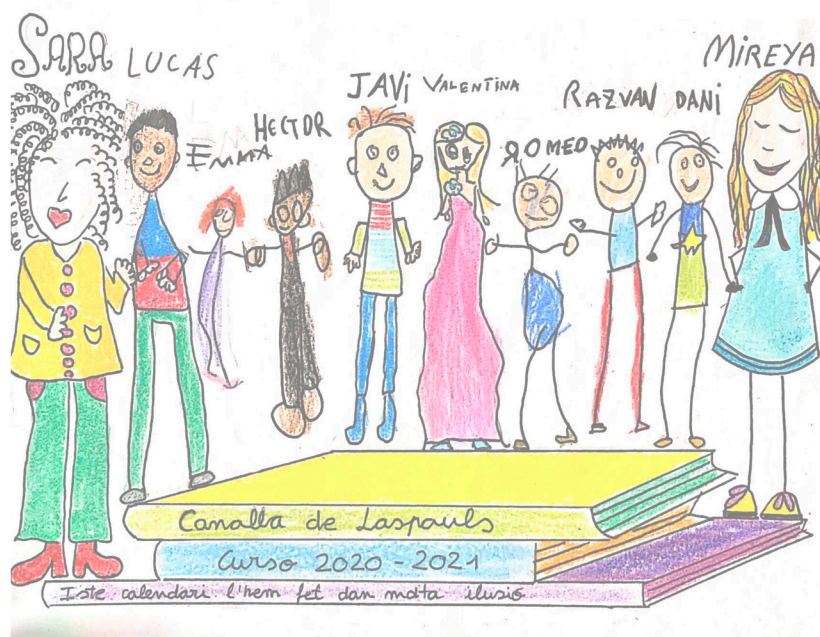 SARA
LUCAS
EMMA
HECTOR
JAVi
VALENTINA
ROMEO
RAZVAN
DANi
MiREYA
Canalla de Laspauls
Curso 2020-2021
Iste calendari l'hem fet dan molta ilusió